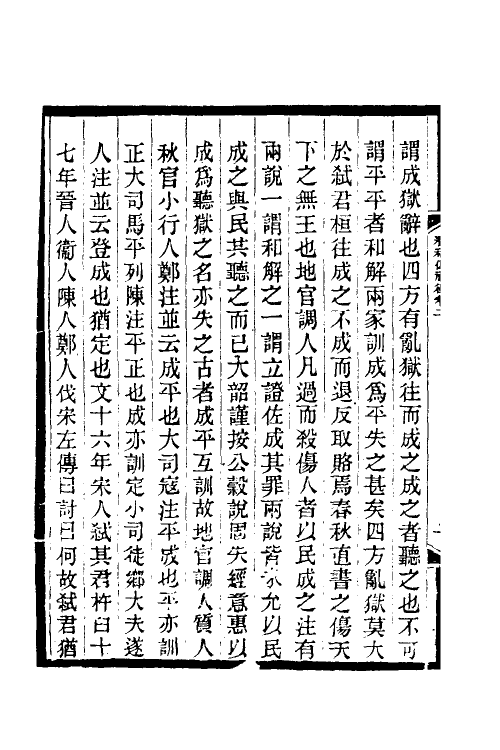 謂成獄辭也四方有亂獄往而成之成之者聽之也不可
謂平平者和解兩家訓成爲平失之甚矣四方亂獄莫大
於弑君桓往成之不成而退反取賂焉春秋直書之傷天
下之無王也地官調人凡過而殺傷人者以民成之注有
兩說一謂和解之一謂立證佐成其罪兩說皆未允以民
成之與民共聽之而已大韶謹按公穀說固失經意惠以
成爲聽獄之名亦失之古者成平互訓故地官調人質人
秋官小行人鄭注並云成平也大司寇注平成也平亦訓
正大司馬平列陳注平正也成亦訓定小司徒鄉大夫遂
人注並云登成也猶定也文十六年宋人弑其君杵臼十
七年晉人衞人陳人鄭人伐宋左傳曰討曰何故弑君猶